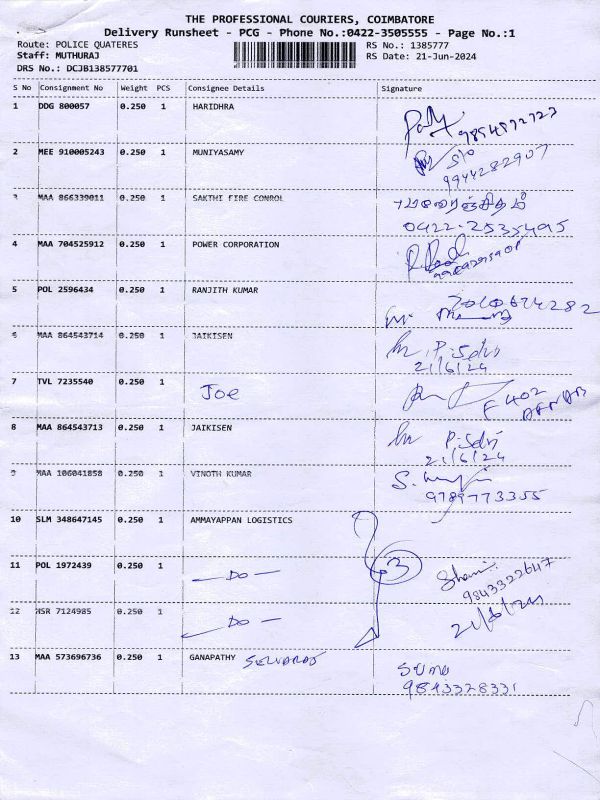 THE PROFESSIONAL COURIERS, COIMBATORE
Delivery Runsheet - PCG - Phone No.:0422-3505555 - Page No.:1
Route: POLICE QUATERES RS No.: 1385777
Staff: MUTHURAJ RS Date: 21-Jun-2024
DRS No.: DCJB138577701
S No Consignment No Weight PCS Consignee Details Signature
1 DDG 800057 0.250 1 HARIDHRA
9854572723
2 MEE 910005243 0.250 1 MUNIYASAMY S/o
9944282907
3 MAA 866339011 0.250 1 SAKTHI FIRE CONROL
0422-2535495
4 MAA 704525912 0.250 1 POWER CORPORATION
5 POL 2596434 0.250 1 RANJITH KUMAR
7010674282
6 MAA 864543714 0.250 1 JAIKISEN P. Selvi
21/6/24
7 TVL 7235540 0.250 1 Joe F 402
8 MAA 864543713 0.250 1 JAIKISEN P. Selvi
21/6/24
9 MAA 106041858 0.250 1 VINOTH KUMAR
9789773355
10 SLM 348647145 0.250 1 AMMAYAPPAN LOGISTICS
11 POL 1972439 0.250 1 — DO — 3
9843322647
12 HSR 7124985 0.250 1 — DO — 21/6/24
13 MAA 573696736 0.250 1 GANAPATHY SELVARAJ
9843328331